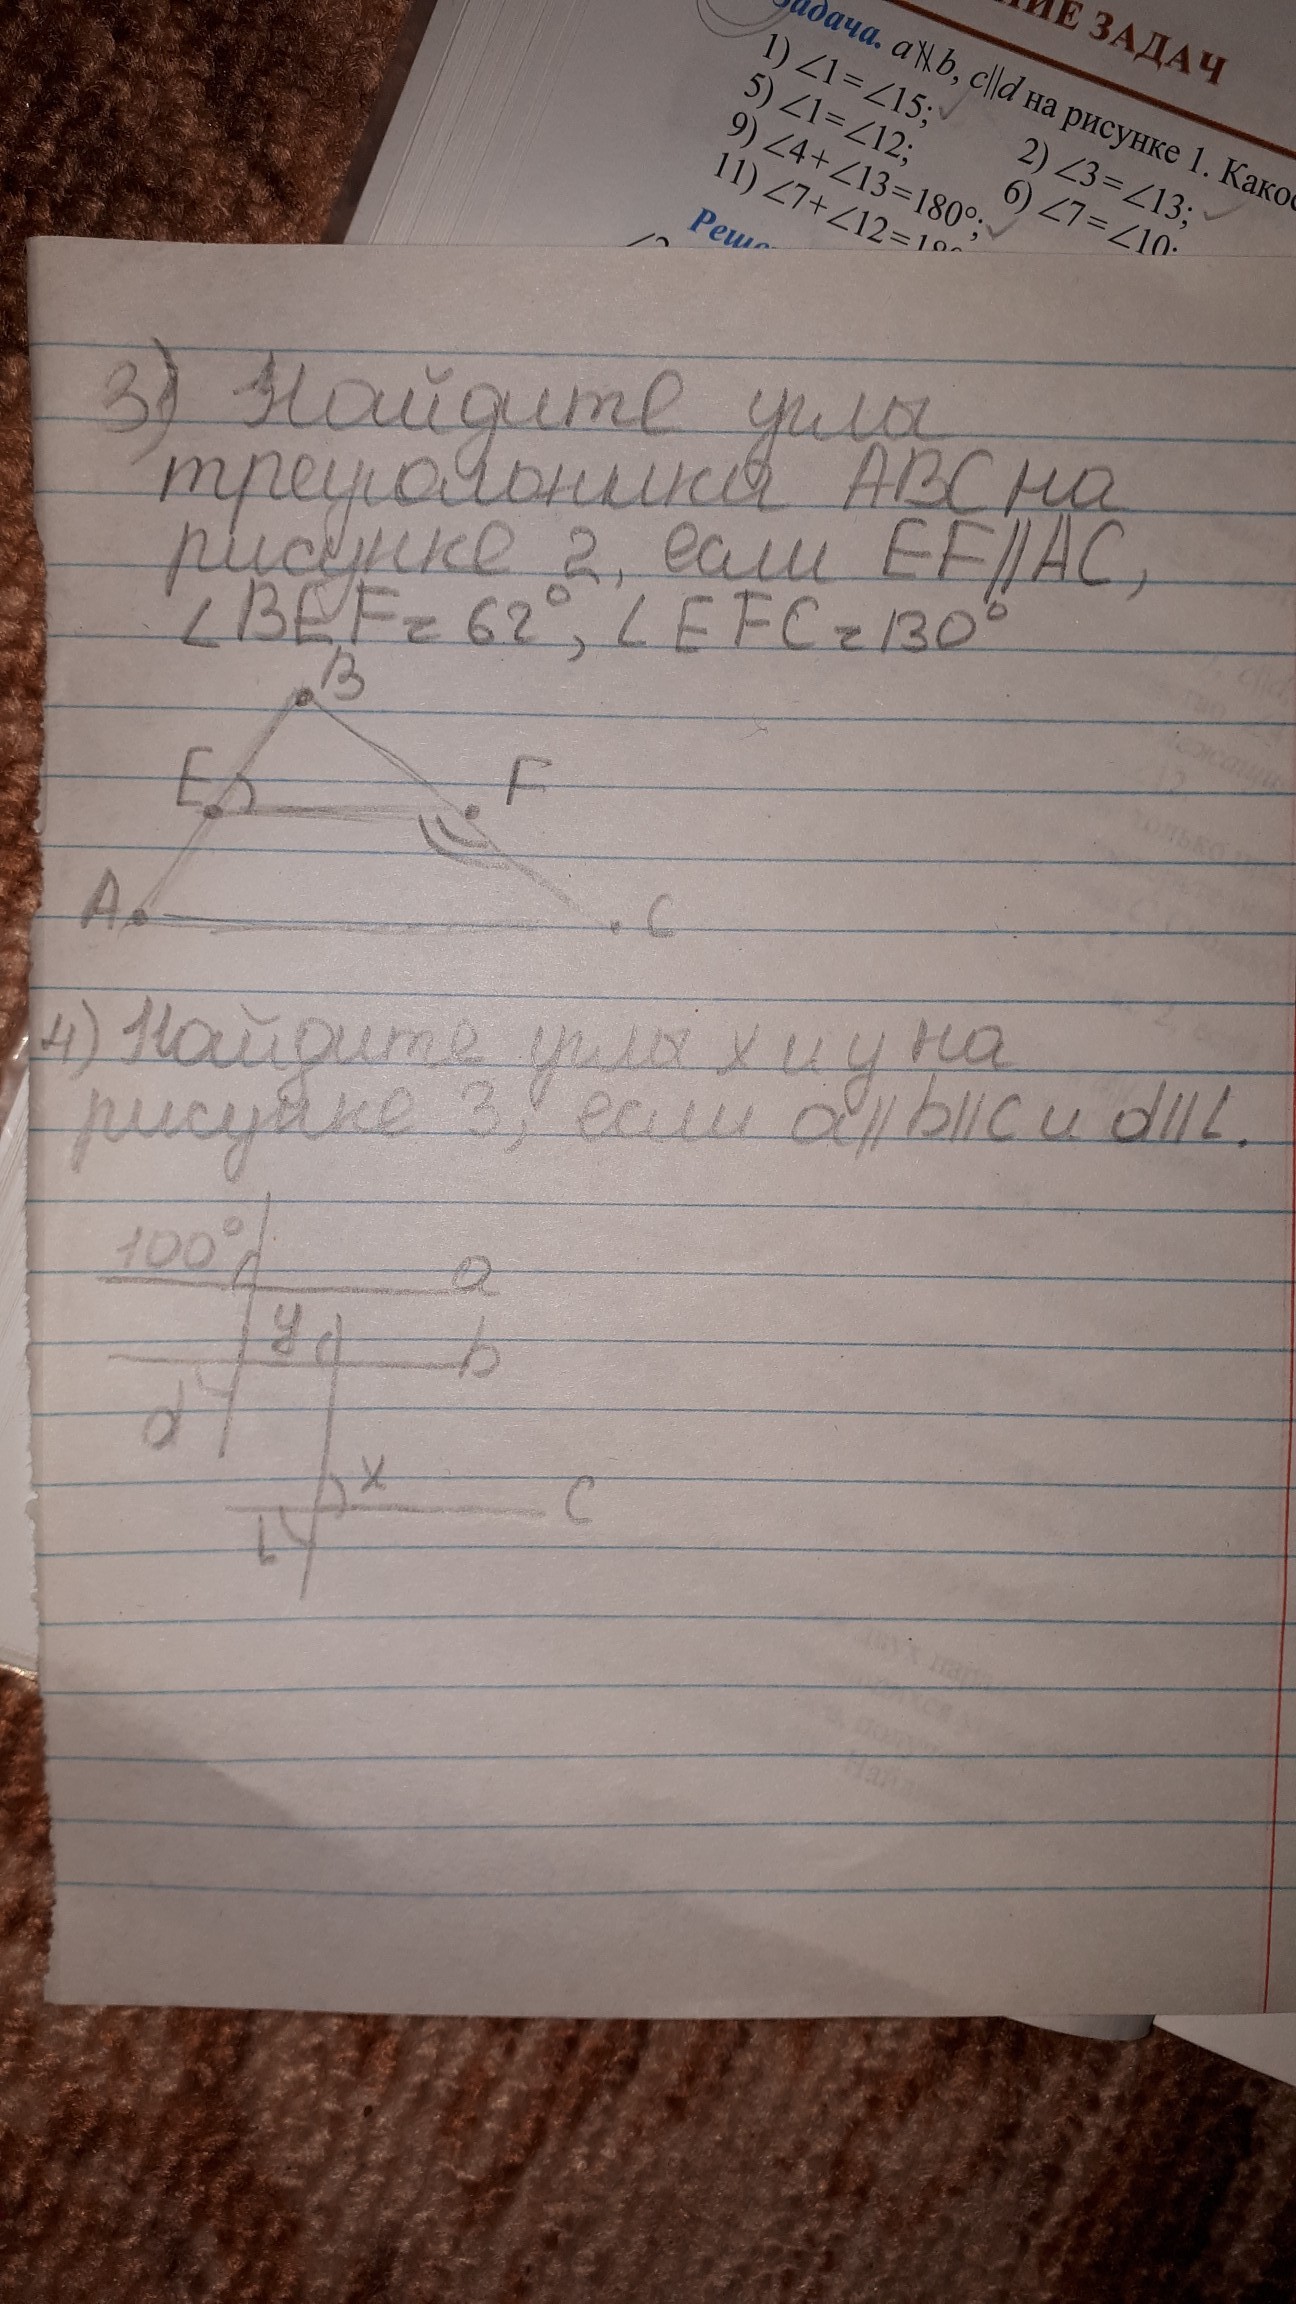 ИЕ ЗАДАЧ
Задача. a∦b, c||d на рисунке 1.
1) ∠1=∠15;
2) ∠3=∠13;
5) ∠1=∠12;
6) ∠7=∠10;
9) ∠4+∠13=180°;
11) ∠7+∠12=18
Реше
3) Найдите углы
треугольника ABC на
рисунке 2, если EF||AC,
∠BEF=62°, ∠EFC=130°
B
E F
A C
4) Найдите углы x и y на
рисунке 3, если a||b||c и d||l.
100°
a
y
b
d
x
c
l